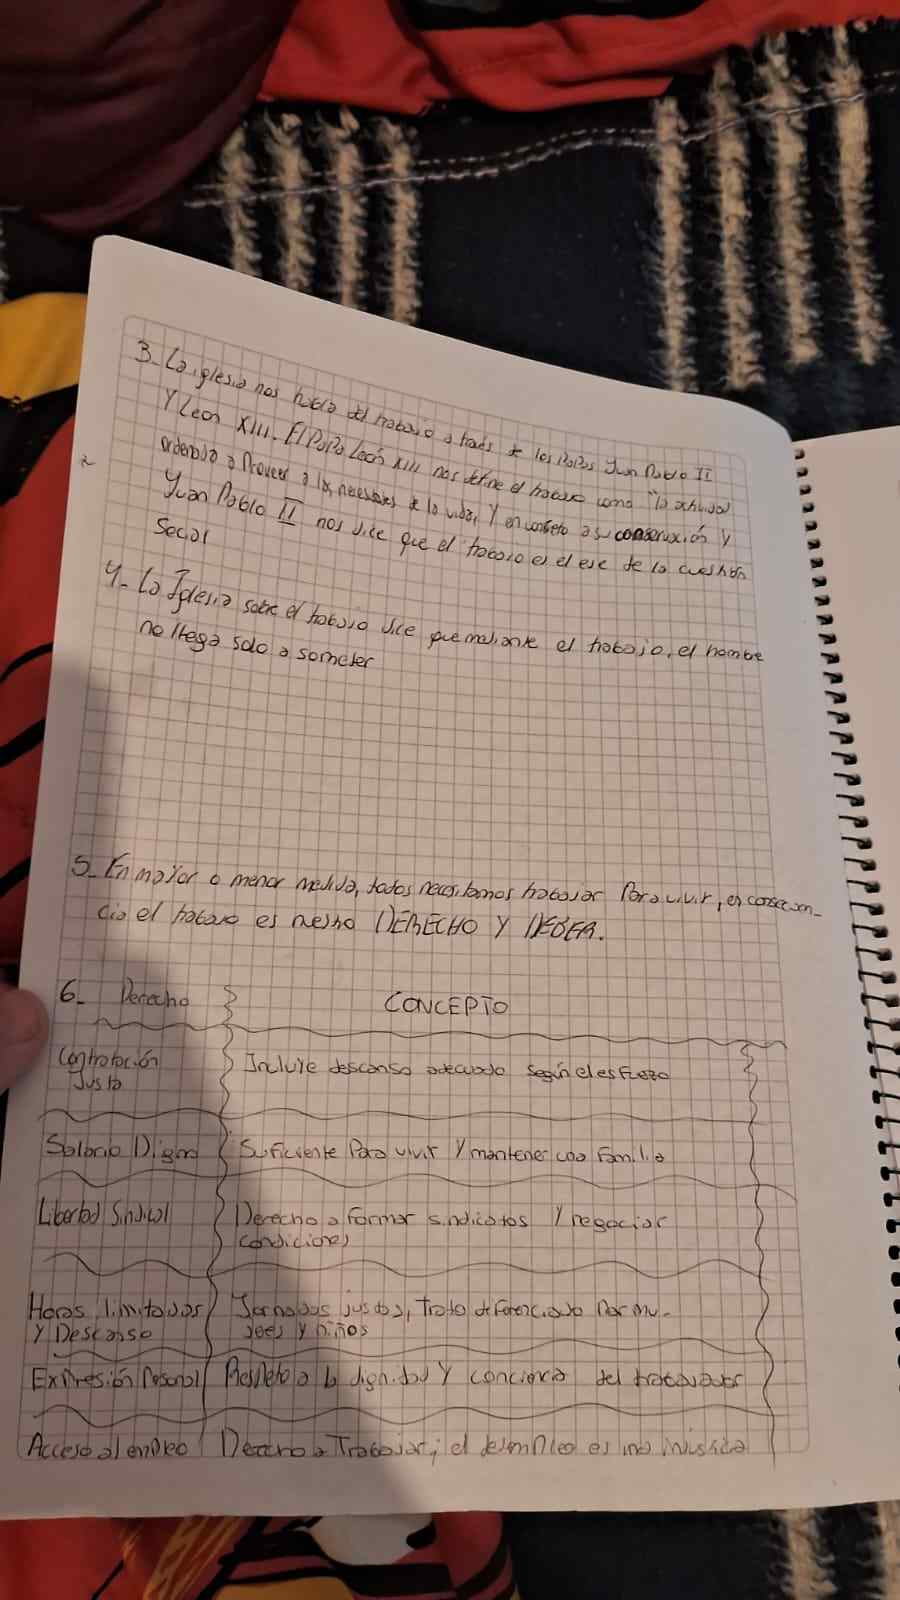 3- La iglesia nos habla del trabajo a través de los Papas Juan Pablo II
Y Leon XIII. El Papa León XIII nos define el trabajo como "la actividad
ordenada a Proveer a las necesidades de la vida, Y en concreto a su conservación y
Juan Pablo II nos dice que el trabajo es el eje de la cuestión
Social
4- La Iglesia sobre el trabajo dice que mediante el trabajo, el hombre
no llega solo a someter
5- En mayor o menor medida, todos necesitamos trabajar Para vivir, en consecuen-
cia el trabajo es nuestro DERECHO Y DEBER.
6- Derecho CONCEPTO
Contratación Justa Incluye descanso adecuado según el esfuerzo
Salario Digno Suficiente Para vivir Y mantener una familia
Libertad Sindical Derecho a formar sindicatos Y negociar
condiciones
Horas limitadas Jornadas justas, Trato diferenciado Par mu-
Y Descanso jeres y niños
Expresión Personal Respeto a la dignidad Y conciencia del trabajador
Acceso al empleo Derecho a Trabajar; el desempleo es una injusticia